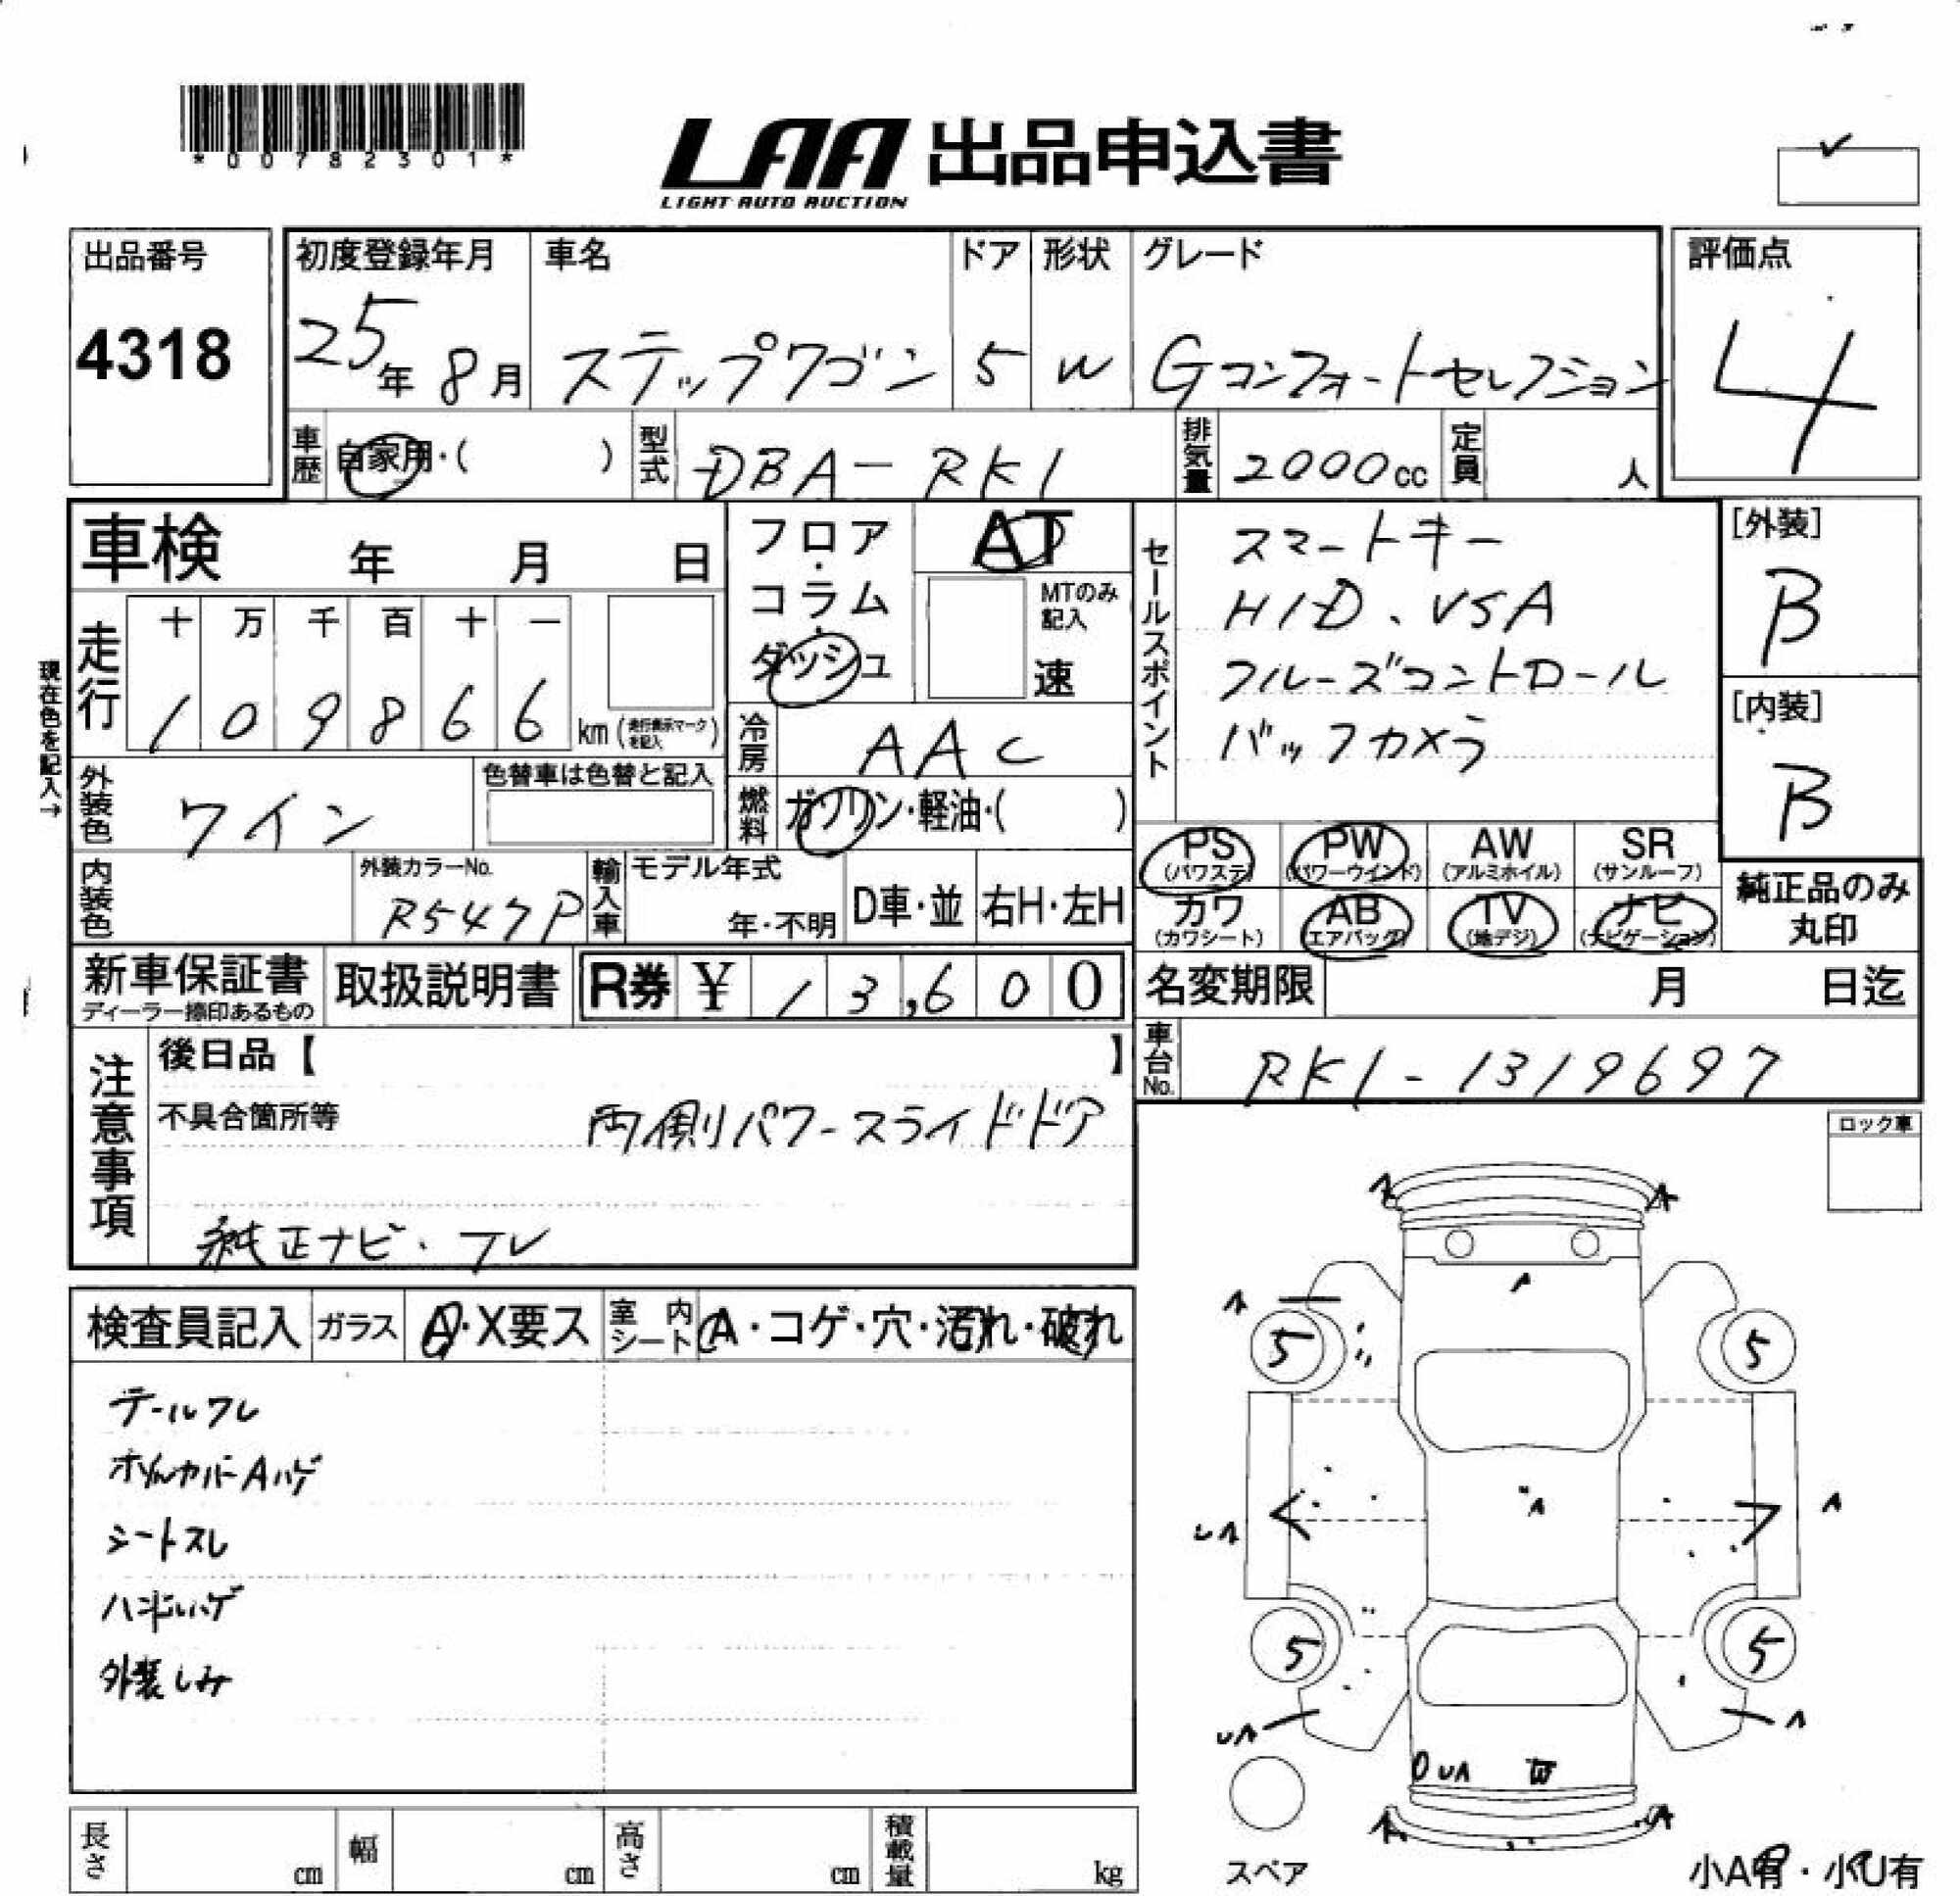 *00782301*
LAA 出品申込書
LIGHT AUTO AUCTION
出品番号
4318
初度登録年月
25年8月
車名
ステップワゴン
ドア
5
形状
W
グレード
Gコンフォートセレクション
評価点
4
車歴
自家用・( )
型式
DBA-RK1
排気量
2000cc
定員
人
車検 年 月 日
走行
十 万 千 百 十 一
1 0 9 8 6 6 km (走行表示マークを記入)
現在色を記入→
外装色
ワイン
色替車は色替と記入
内装色
外装カラーNo.
R547P
輸入車
モデル年式
年・不明
D車・並
右H・左H
フロア・コラム・ダッシュ
AT
MTのみ記入
速
冷房
AAC
燃料
ガソリン・軽油・( )
セールスポイント
スマートキー
HID、VSA
クルーズコントロール
バックカメラ
[外装]
B
[内装]
B
PS (パワステ)
PW (パワーウインド)
AW (アルミホイル)
SR (サンルーフ)
カワ (カワシート)
AB (エアバッグ)
TV (地デジ)
ナビ (ナビゲーション)
純正品のみ丸印
新車保証書
ディーラー捺印あるもの
取扱説明書
R券 ¥ 13,600
名変期限 月 日迄
車台No.
RK1-1319697
注意事項
後日品【 】
不具合箇所等
両側パワースライドドア
純正ナビ・TV
ロック車
検査員記入
ガラス
A・X要ス
室内シート
A・コゲ・穴・汚れ・破れ
テールワレ
ホイルカバーAハゲ
シートスレ
ハンドルハゲ
外装しみ
A
A
A
A
5
5
A
UA
A
5
5
UA
A
UA
W
A
A
スペア
小A有・小U有
長さ cm
幅 cm
高さ cm
積載量 kg